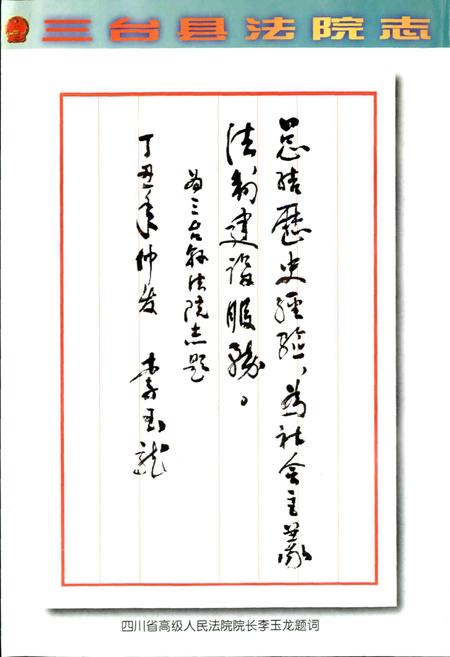 三台县法院志
总结历史经验，为社会主义
法制建设服务。
为三台县法院志题
丁丑年仲发 李玉龙
四川省高级人民法院院长李玉龙题词